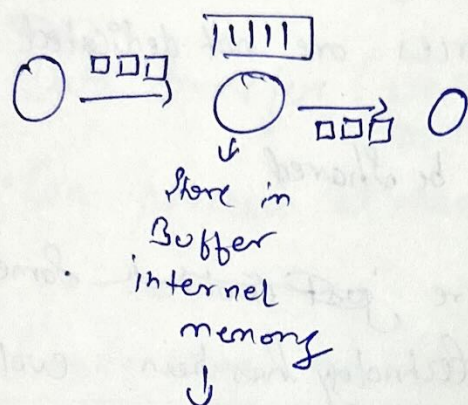 Store in
Buffer
internel
memory